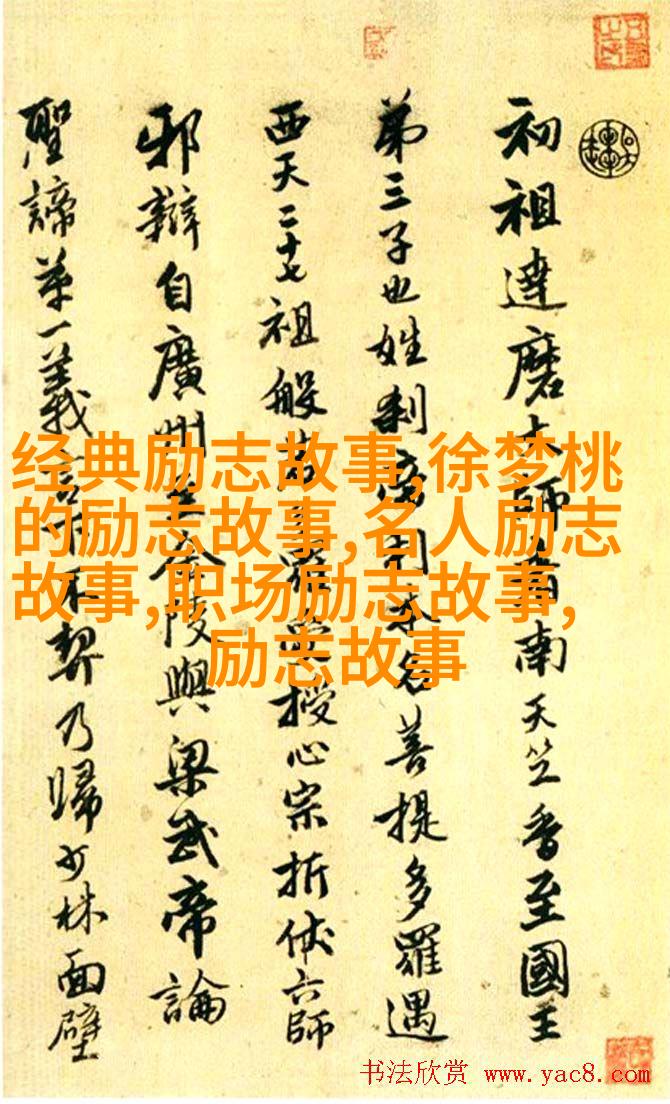 初祖達磨大師者南天竺香至國王
第三子也姓刹帝利本名菩提多羅遇
西天二十七祖般若多羅授心宗折伏六師
邪辯自廣州至金陵與梁武帝論
聖諦第一義言下不契乃歸少林面壁
经典励志故事,徐梦桃
的励志故事,名人励志
故事,职场励志故事,
励志故事
书法欣赏 www.yac8.com